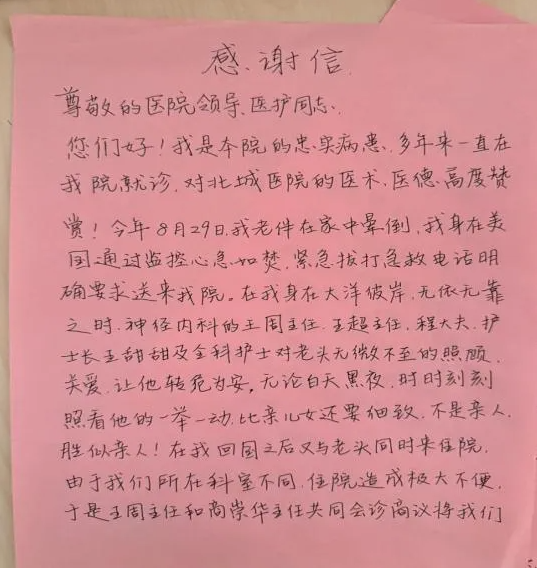 感谢信
尊敬的医院领导、医护同志、
您们好！我是本院的忠实病患、多年来一直在
我院就诊、对北城医院的医术、医德、高度赞
赏！今年8月29日，我老伴在家中晕倒，我身在美
国通过监控心急如焚、紧急拔打急救电话明
确要求送来我院。在我身在大洋彼岸、无依无靠
之时、神经内科的王周主任、王超主任、程大夫、护
士长王甜甜及全科护士对老头无微不至的照顾、
关爱、让他转危为安。无论白天黑夜、时时刻刻
照看他的一举一动、比亲儿女还要细致、不是亲人、
胜似亲人！在我回国之后又与老头同时来住院、
由于我们所在科室不同、住院造成极大不便、
于是王周主任和高崇华主任共同会诊商议将我们